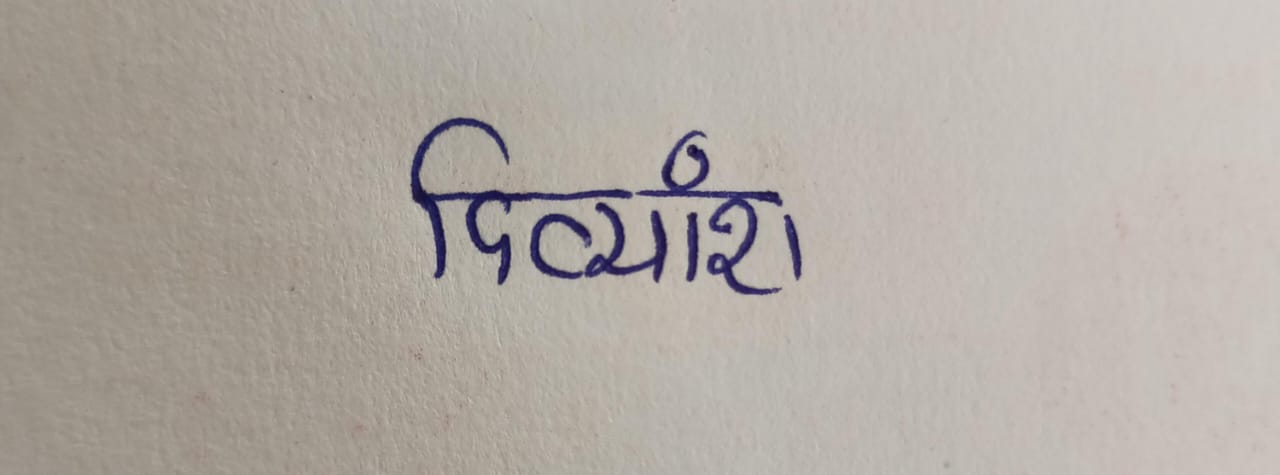 दिव्यांश